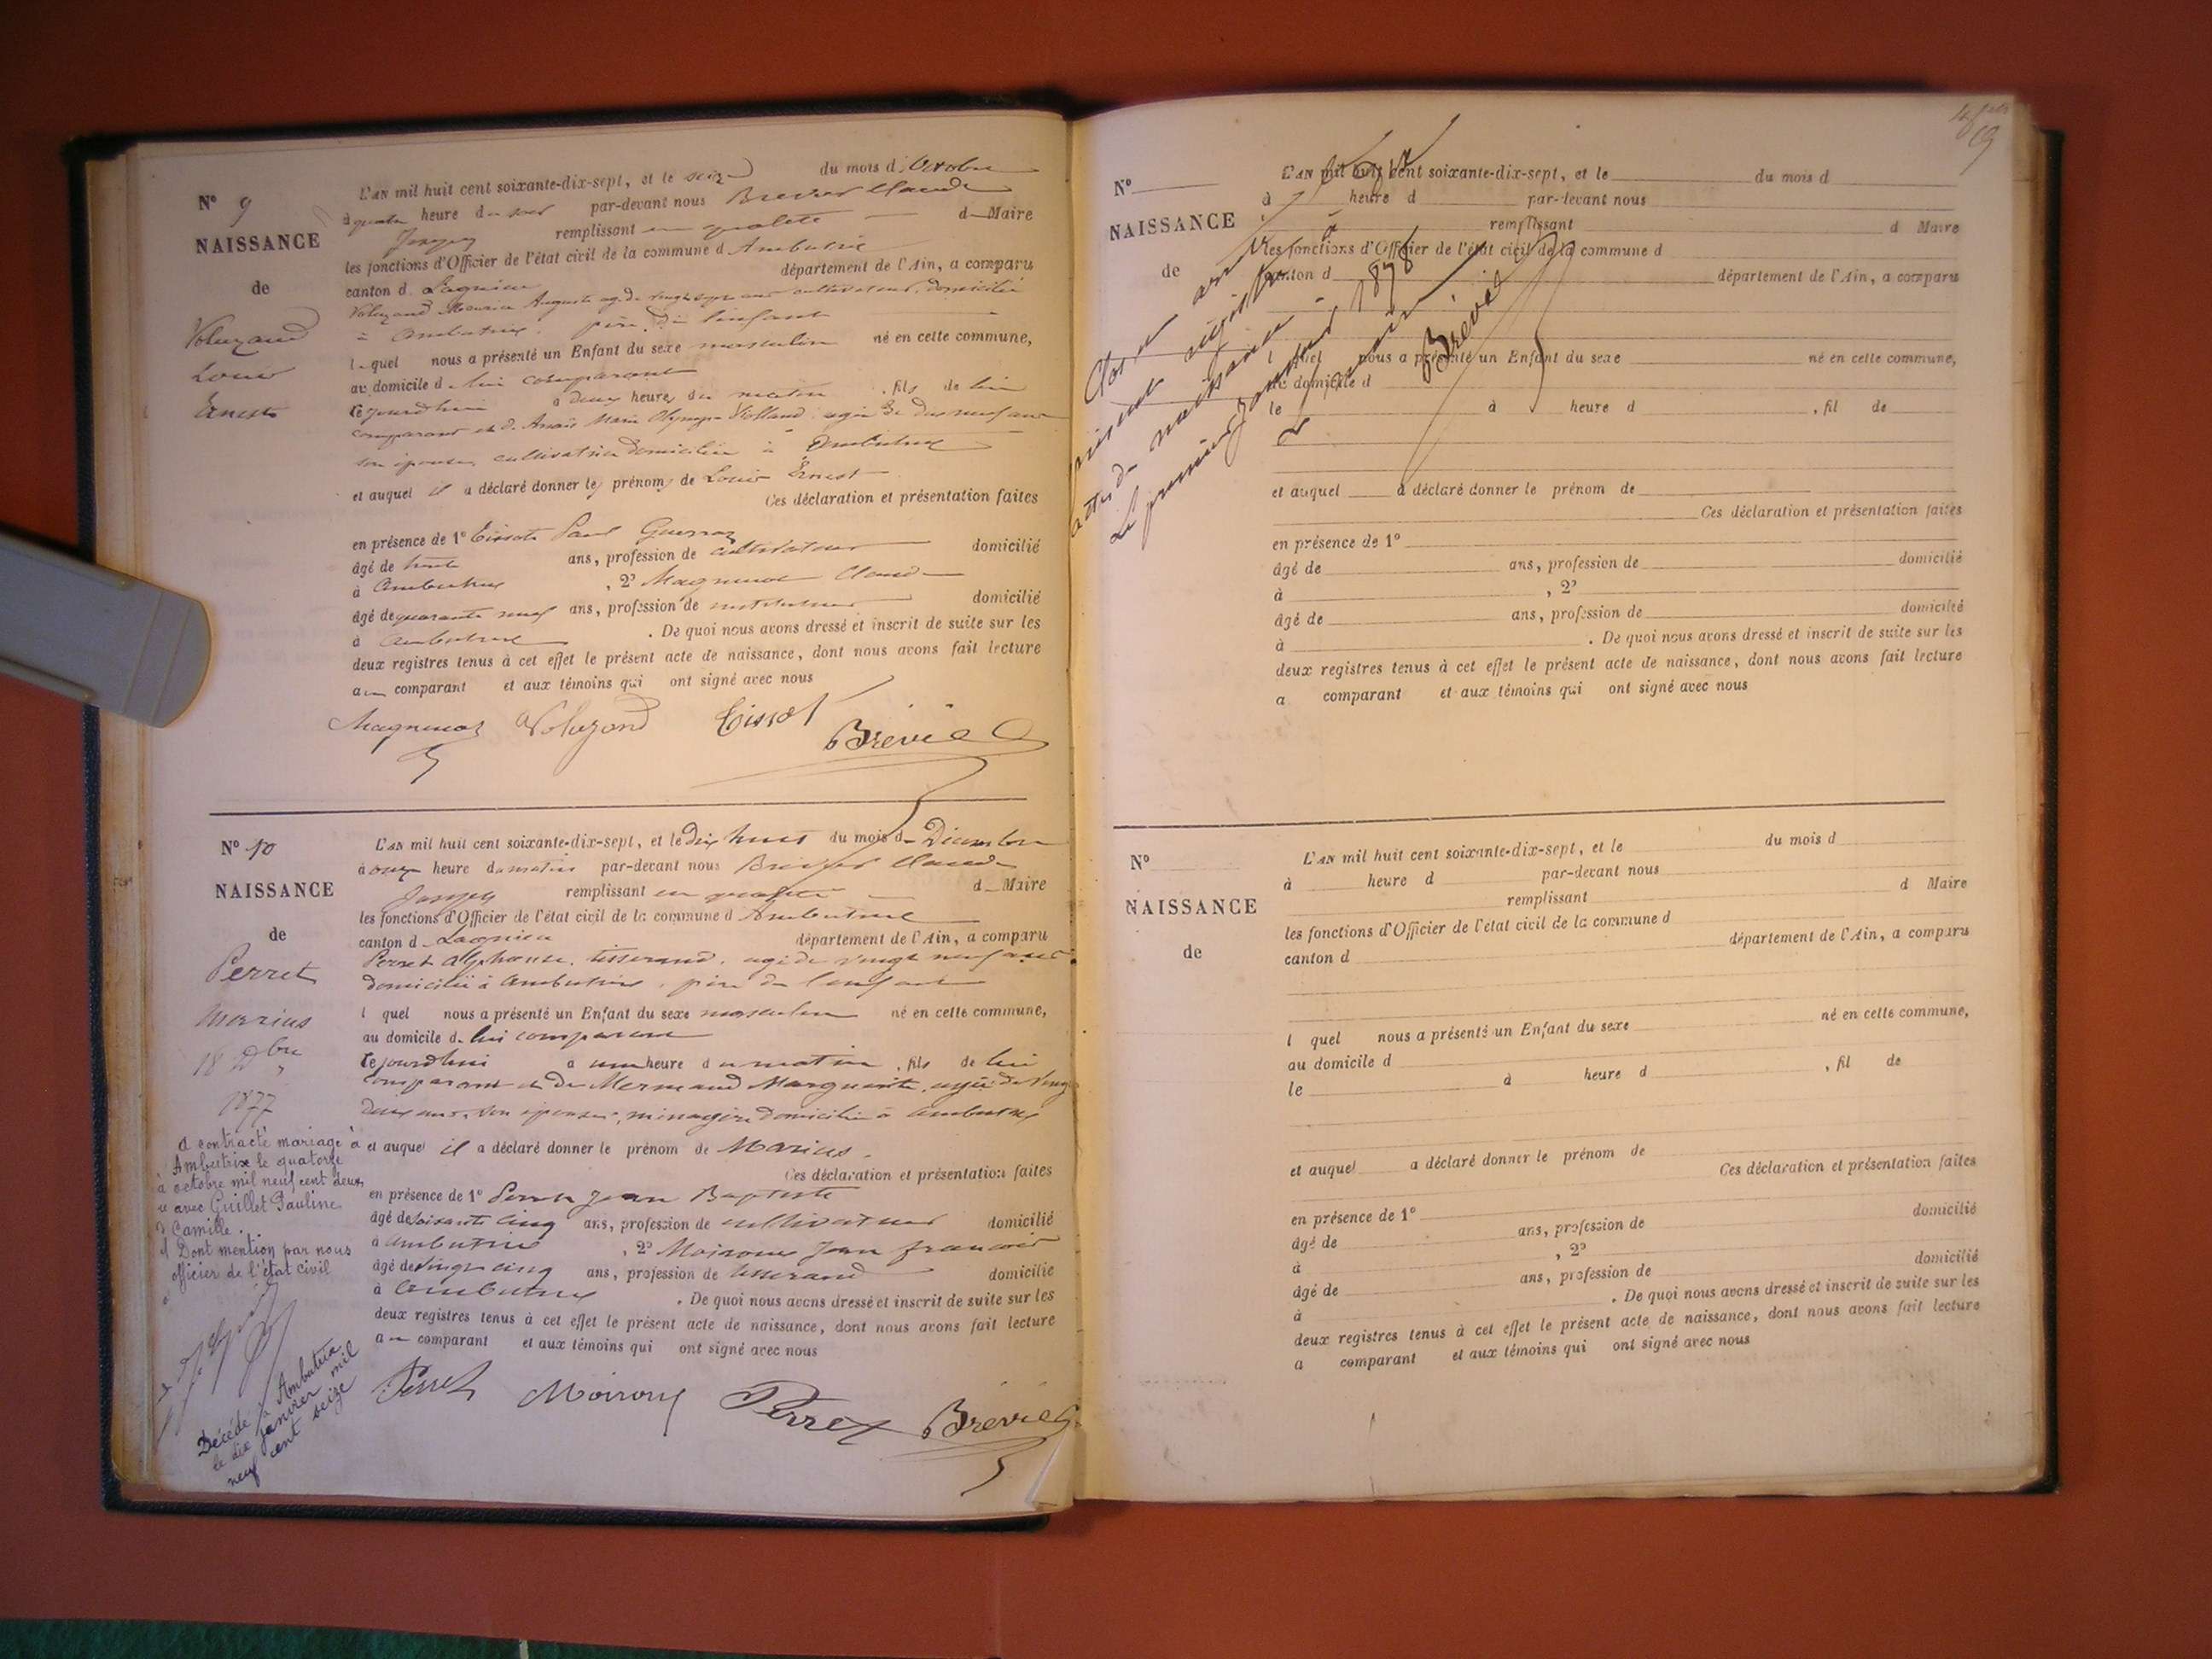 N° 9
NAISSANCE
de
Voluzand
Louis
Ernest
L'AN mil huit cent soixante-dix-sept, et le seize du mois d'Octobre
à quatre heure du soir par-devant nous Brevet Claude
Joseph remplissant en qualité d Maire
les fonctions d'Officier de l'état civil de la commune d Ambutrix
canton d Lagnieu département de l'Ain, a comparu
Voluzand Auguste agé de vingt sept ans cultivateur, domicilié
à Ambutrix, père de l'enfant
l quel nous a présenté un Enfant du sexe masculin né en cette commune,
au domicile de lui comparant
le jourdhui à deux heures du matin, fils de lui
comparant et d. Anaïs Marie Olympe Violland agée de dix neuf ans
son épouse, cultivatrice domiciliée à Ambutrix
et auquel il a déclaré donner les prénoms de Louis Ernest
Ces déclaration et présentation faites
en présence de 1° Tissot Paul
âgé de trente ans, profession de cultivateur domicilié
à Ambutrix, 2° Magnenot Claude
âgé de quarante neuf ans, profession de instituteur domicilié
à Ambutrix. De quoi nous avons dressé et inscrit de suite sur les
deux registres tenus à cet effet le présent acte de naissance, dont nous avons fait lecture
au comparant et aux témoins qui ont signé avec nous
Magnenot Voluzand Tissot Brevet
N° 10
NAISSANCE
de
Perret
Marius
18 Xbre
1877
a contracté mariage à
Ambutrix le quatorze
octobre mil neuf cent deux
avec Guillet Pauline
Camille.
Dont mention par nous
officier de l'état civil
Décédé à Ambutrix
le dix janvier mil
neuf cent seize
L'AN mil huit cent soixante-dix-sept, et le dix huit du mois de Décembre
à onze heure du matin par-devant nous Brevet Claude
Joseph remplissant en qualité d Maire
les fonctions d'Officier de l'état civil de la commune d Ambutrix
canton d Lagnieu département de l'Ain, a comparu
Perret Alphonse, tisserand, agé de vingt neuf ans
domicilié à Ambutrix, père de l'enfant
l quel nous a présenté un Enfant du sexe masculin né en cette commune,
au domicile de lui comparant
le jourdhui à une heure du matin, fils de lui
comparant et de Mermand Marguerite, agée de vingt
deux ans, son épouse, ménagère domiciliée à Ambutrix
et auquel il a déclaré donner le prénom de Marius.
Ces déclaration et présentation faites
en présence de 1° Perret Jean Baptiste
âgé de soixante cinq ans, profession de cultivateur domicilié
à Ambutrix, 2° Moiroux Jean françois
âgé de vingt cinq ans, profession de tisserand domicilié
à Ambutrix. De quoi nous avons dressé et inscrit de suite sur les
deux registres tenus à cet effet le présent acte de naissance, dont nous avons fait lecture
au comparant et aux témoins qui ont signé avec nous
Perret Moiroux Perret Brevet
19
N°
NAISSANCE
de
Clos et arrêté le
présent registre
actes de naissance
Le premier janvier 1878
Le Maire
Brevet
L'AN mil huit cent soixante-dix-sept, et le du mois d
à heure d par-devant nous
remplissant d Maire
les fonctions d'Officier de l'état civil de la commune d
canton d département de l'Ain, a comparu
l quel nous a présenté un Enfant du sexe né en cette commune,
au domicile d
le à heure d , fil de
et auquel a déclaré donner le prénom de
Ces déclaration et présentation faites
en présence de 1°
âgé de ans, profession de domicilié
à , 2°
âgé de ans, profession de domicilié
à . De quoi nous avons dressé et inscrit de suite sur les
deux registres tenus à cet effet le présent acte de naissance, dont nous avons fait lecture
a comparant et aux témoins qui ont signé avec nous
N°
NAISSANCE
de
L'AN mil huit cent soixante-dix-sept, et le du mois d
à heure d par-devant nous
remplissant d Maire
les fonctions d'Officier de l'état civil de la commune d
canton d département de l'Ain, a comparu
l quel nous a présenté un Enfant du sexe né en cette commune,
au domicile d
le à heure d , fil de
et auquel a déclaré donner le prénom de
Ces déclaration et présentation faites
en présence de 1°
âgé de ans, profession de domicilié
à , 2°
âgé de ans, profession de domicilié
à . De quoi nous avons dressé et inscrit de suite sur les
deux registres tenus à cet effet le présent acte de naissance, dont nous avons fait lecture
a comparant et aux témoins qui ont signé avec nous